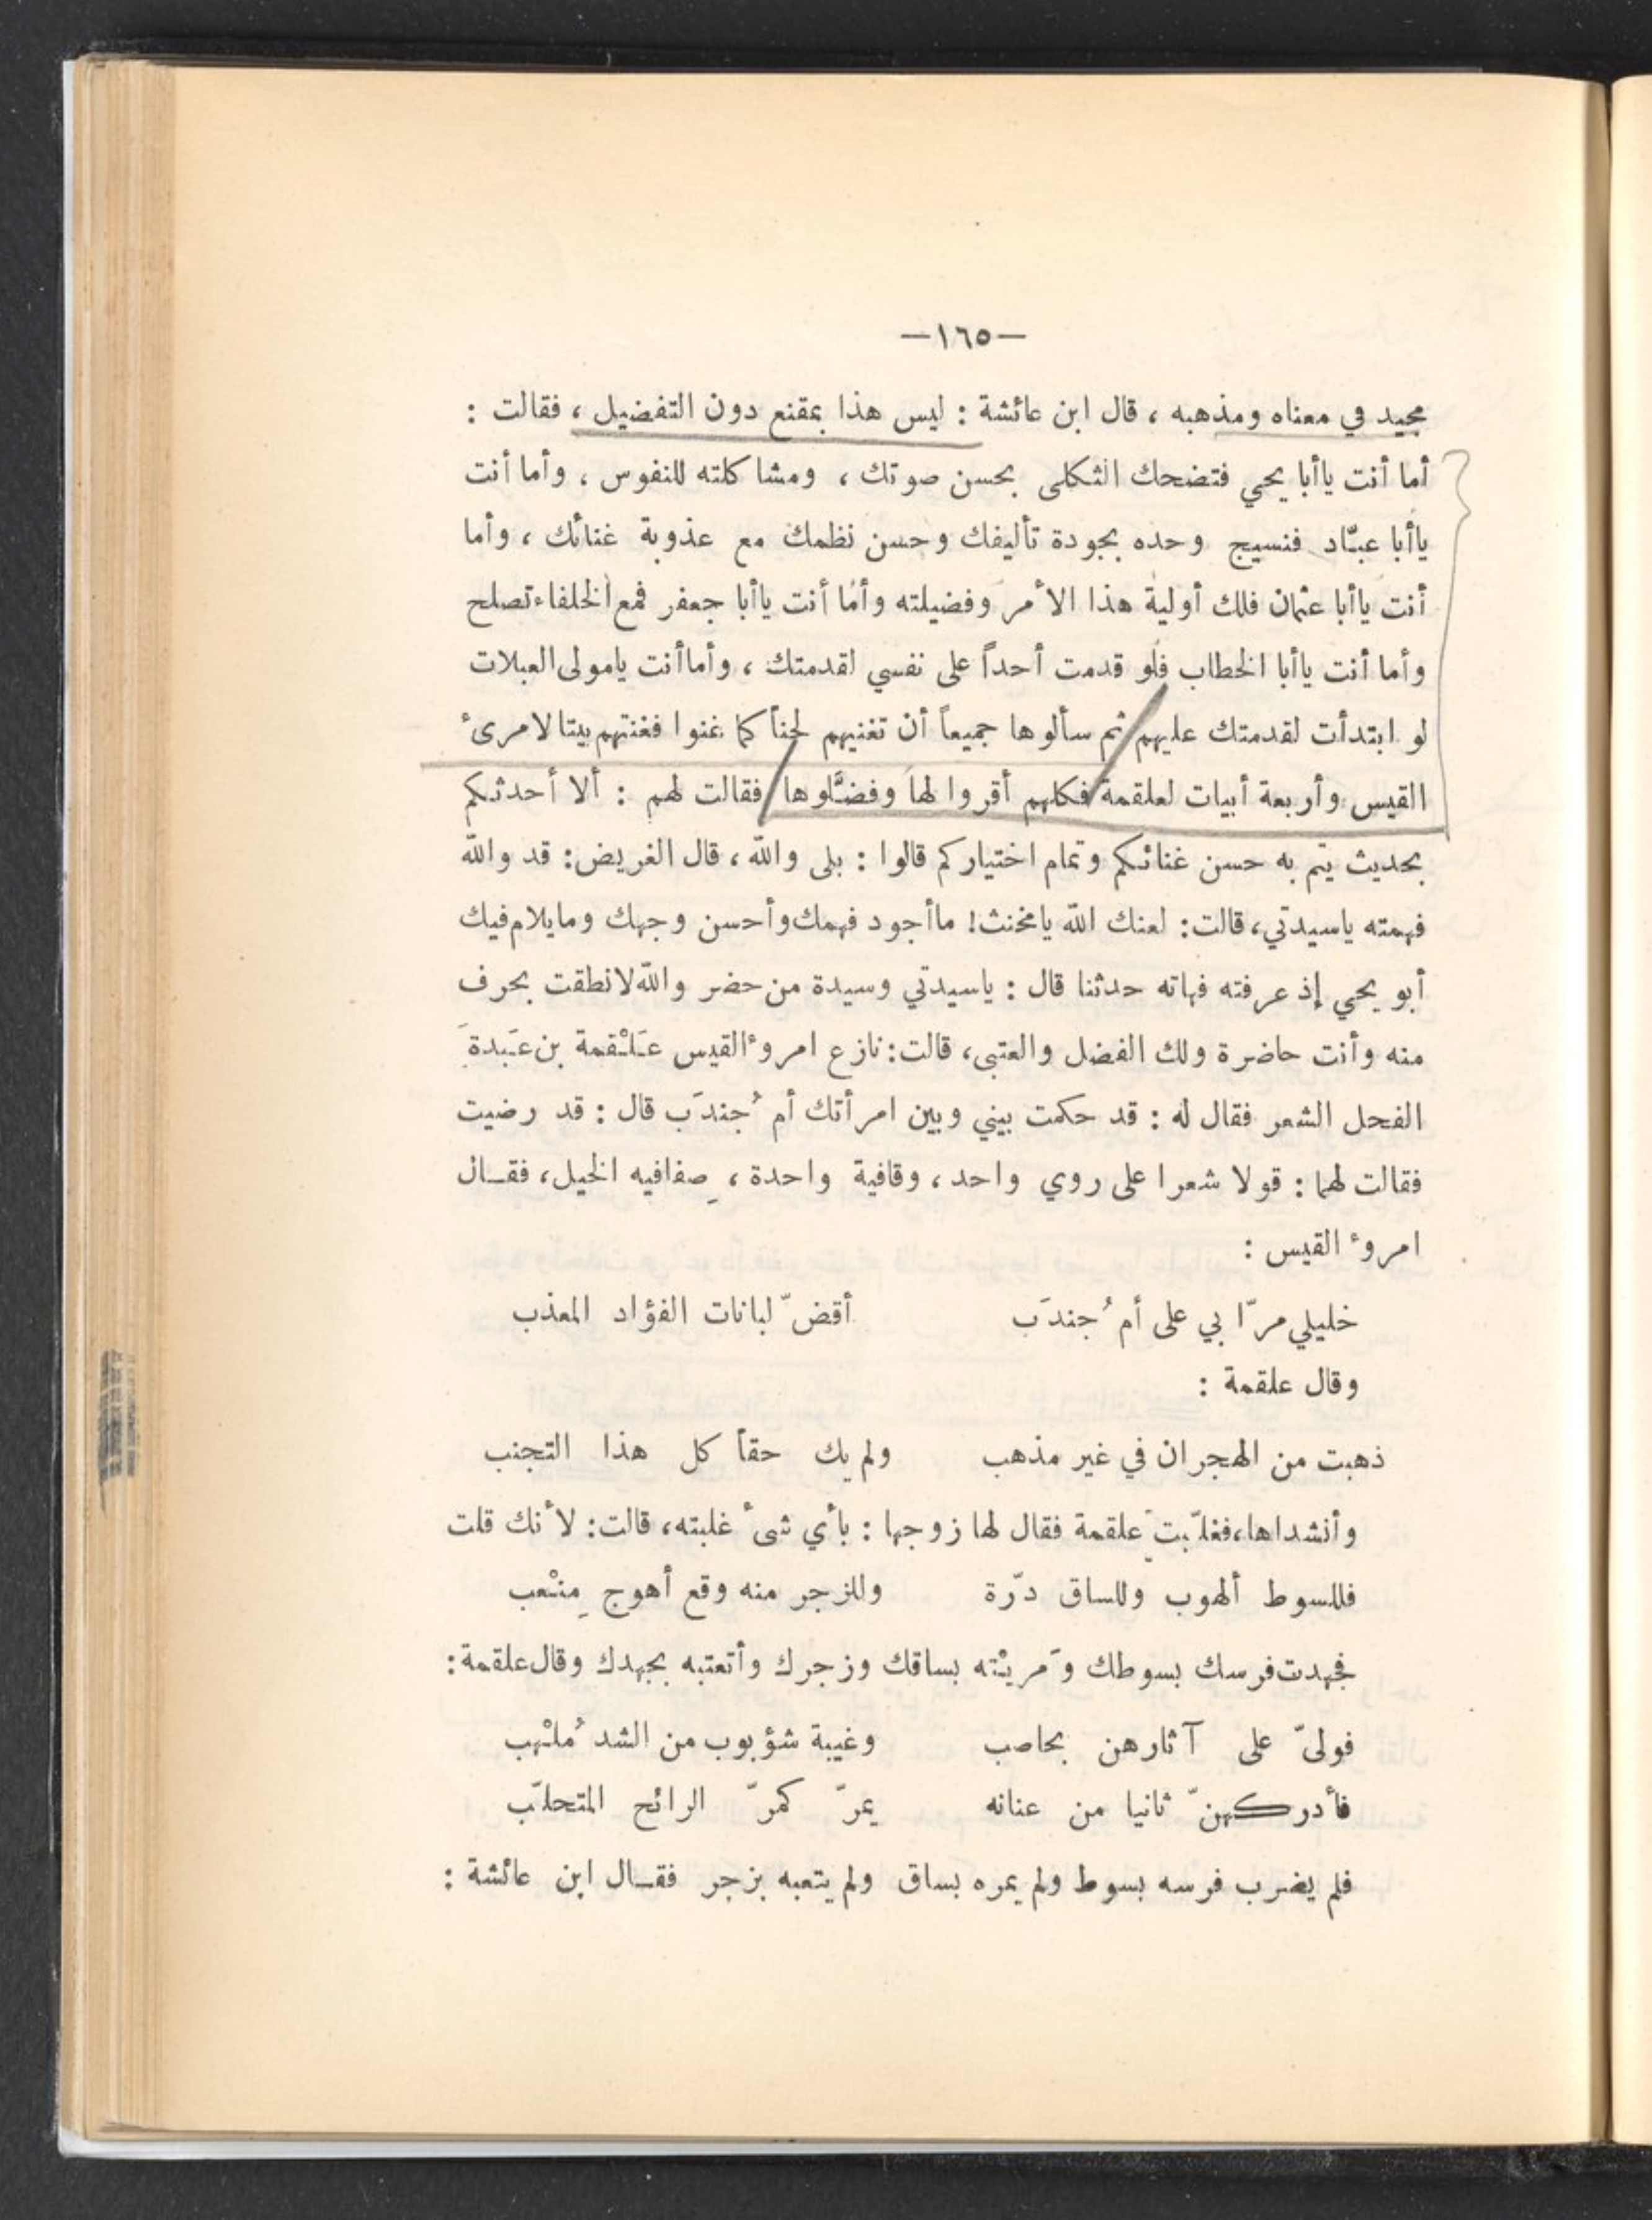 —١٦٥—
مجيد في معناه ومذهبه ، قال ابن عائشة : ليس هذا بمقنع دون التفضيل ، فقالت :
أما أنت ياأبا يحيي فتضحك الثكلى بحسن صوتك ، ومشاكلته للنفوس ، وأما أنت
ياأبا عبّاد فنسيج وحده بجودة تأليفك وحسن نظمك مع عذوبة غنائك ، وأما
أنت ياأبا عثمان فلك أولية هذا الأمر وفضيلته وأما أنت ياأبا جعفر فمع الخلفاء تصلح
وأما أنت ياأبا الخطاب فلو قدمت أحداً على نفسي لقدمتك ، وأما أنت يامولى العبلات
لو ابتدأت لقدمتك عليهم ثم سألوها جميعاً أن تغنيهم لحناً كما غنوا فغنتهم بيتا لامرىء
القيس وأربعة أبيات لعلقمة فكلهم أقروا لها وفضَّلوها فقالت لهم : ألا أحدثكم
بحديث يتم به حسن غنائكم وتمام اختياركم قالوا : بلى والله ، قال الغريض : قد والله
فهمته ياسيدتي ، قالت : لعنك الله يامخنث! ماأجود فهمك وأحسن وجهك ومايلام فيك
أبو يحيي إذ عرفته فهاته حدثنا قال : ياسيدتي وسيدة من حضر والله لانطقت بحرف
منه وأنت حاضرة ولك الفضل والعتبى ، قالت : نازع امروء القيس عَلْقمة بن عَبدةَ
الفحل الشعر فقال له : قد حكمت بيني وبين امرأتك أم جُندَب قال : قد رضيت
فقالت لهما : قولا شعرا على روي واحد ، وقافية واحدة ، صِفافيه الخيل ، فقال
امروء القيس :
خليلي مرّا بي على أم جُندَب أقضّ لبانات الفؤاد المعذب
وقال علقمة :
ذهبت من الهجران في غير مذهب ولم يك حقاً كل هذا التجنب
وأنشداها ، فغلّبت عَلقمة فقال لها زوجها : بأي شىء غلبته ، قالت : لأنك قلت
فللسوط ألهوب وللساق درّة وللزجر منه وقع أهوج مِنْعب
فجهدت فرسك بسوطك ومَريْته بساقك وزجرك وأتعتبه بجهدك وقال علقمة :
فولىّ على آثارهن بحاصب وغيبة شؤبوب من الشد مُلْهب
فأدركهنّ ثانيا من عنانه يمرّ كمرّ الرائح المتحلّب
فلم يضرب فرسه بسوط ولم يمره بساق ولم يتعبه بزجر فقال ابن عائشة :